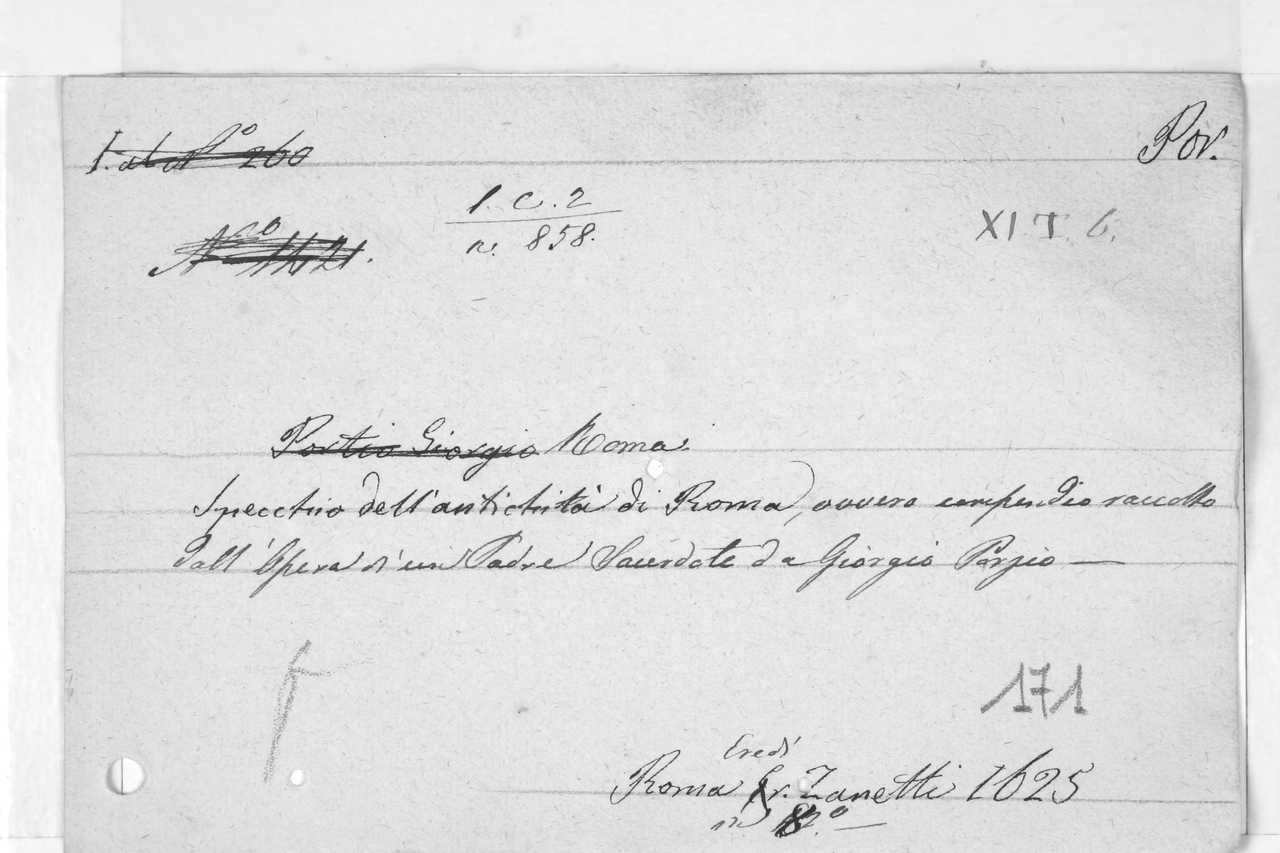 I. al N.º 260
Por.
1. C. 2
n. 858.
XI T. 6.
Nº 1421.
Portio Giorgio Roma.
Specchio dell'antichità di Roma, ovvero compendio raccolto
dall'Opera d'un Padre Sacerdote da Giorgio Porzio —
171
Eredi
Roma Zanetti 1625
in 8.º —